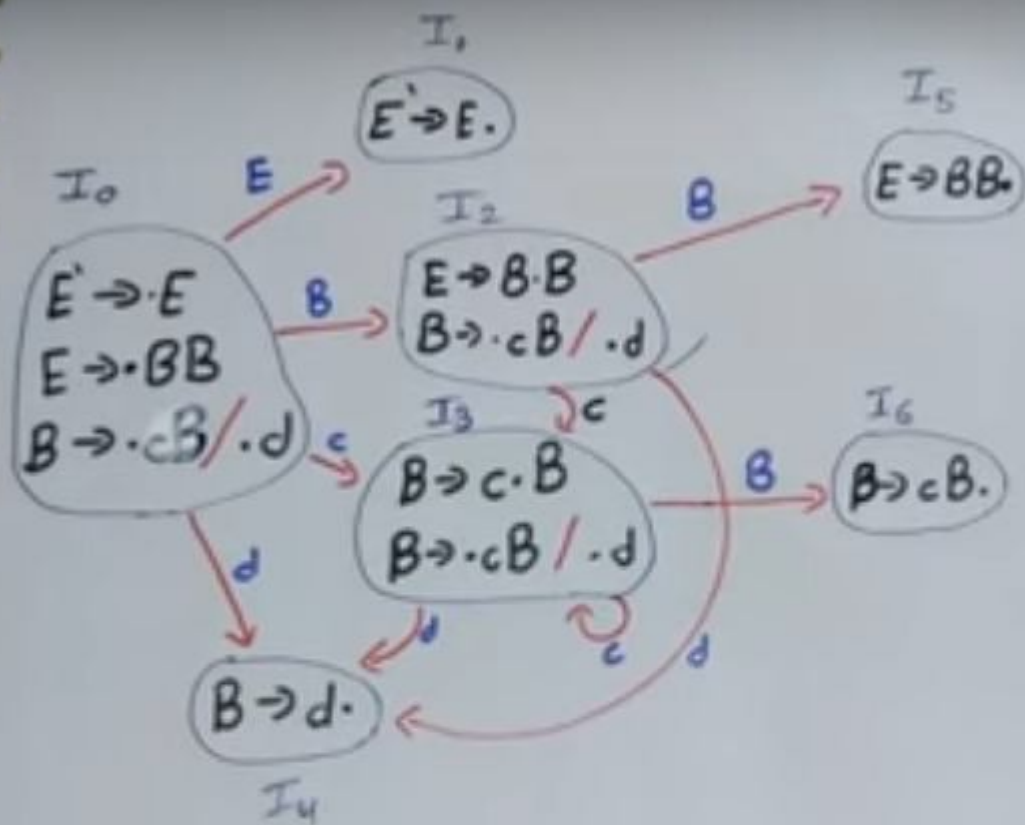 I₁
E' → E.
I₅
E → BB.
I₀
E
B
I₂
E' → .E
E → .BB
B → .cB / .d
B
E → B.B
B → .cB / .d
c
I₃
c
B → c.B
B → .cB / .d
B
I₆
B → cB.
d
d
c
d
B → d.
I₄